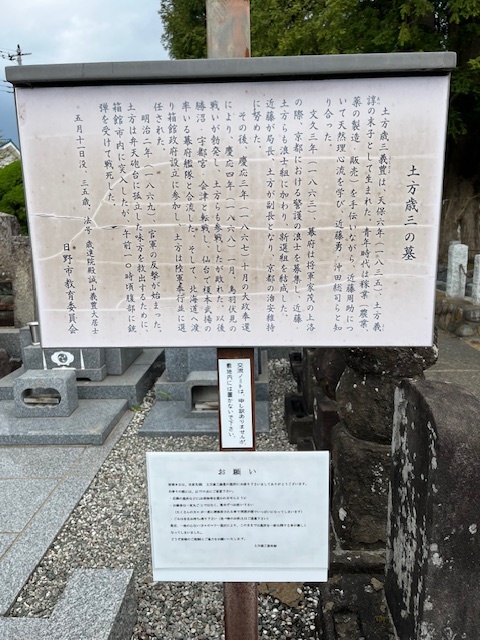 土方歳三の墓
土方歳三義豊は、天保六年(一八三五)、土方義
諄の末子として生まれた。青年時代は稼業(農業、
薬の製造・販売)を手伝いながら、近藤周助につ
いて天然理心流を学び、近藤勇、沖田総司らと知
り合った。
文久三年(一八六三)、幕府は将軍家茂の上洛
の際、京都における警護の浪士を募集し、近藤、
土方らも浪士組に加わり、新選組を結成した。
近藤が局長、土方が副長となり、京都の治安維持
に努めた。
その後、慶応三年(一八六七)十月の大政奉還
により、慶応四年(一八六八)一月、鳥羽伏見の
戦いが勃発し、土方らも参戦したが敗れた。以後
勝沼・宇都宮・会津と転戦し、仙台で榎本武揚の
率いる幕府艦隊と合流した。そして、北海道へ渡
り箱館政府設立に参加し、土方は陸軍奉行並に選
任された。
明治二年(一八六九)、官軍の反撃が始まった。
土方は弁天砲台に孤立した味方を救出するために、
箱館市内に突入したが、午前一〇時頃腹部に銃
弾を受けて戦死した。
五月十一日没、三五歳。法号 歳進院殿誠山義豊大居士
日野市教育委員会
交流ノートは、申し訳ありませんが、
敷地内には置かないで下さい。
お願い